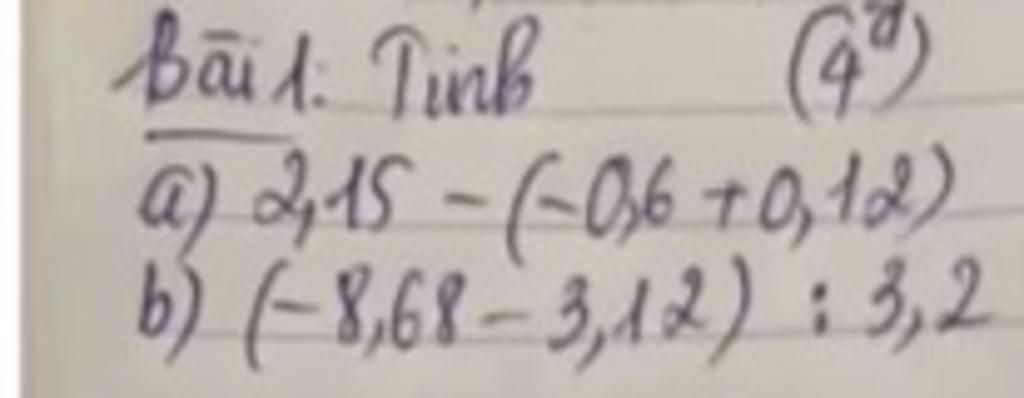 Bài 1: Tính (4đ)
a) 2,15 - (-0,6 + 0,12)
b) (-8,68 - 3,12) : 3,2